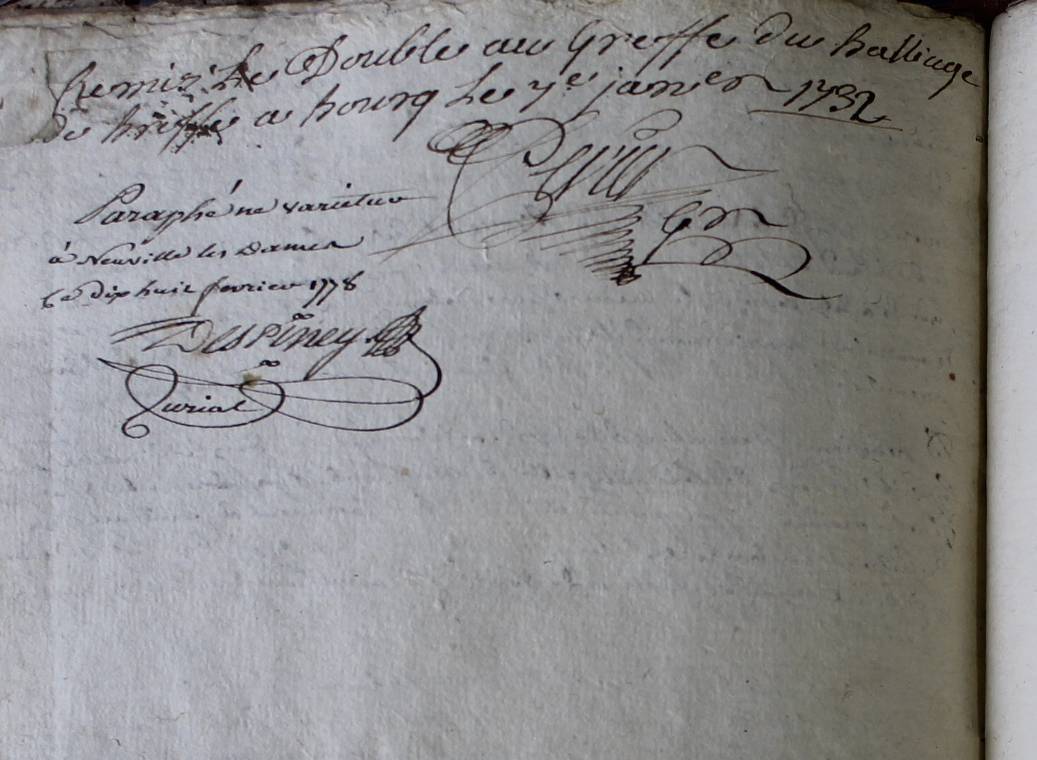 Remis Le Double au Greffe du balliage
de a bourg Le 7e janvier 1732
Gr
Paraphé ne varietur
à Neuville les Dames
Ce dix huit fevrier 1778
Despiney
Curial